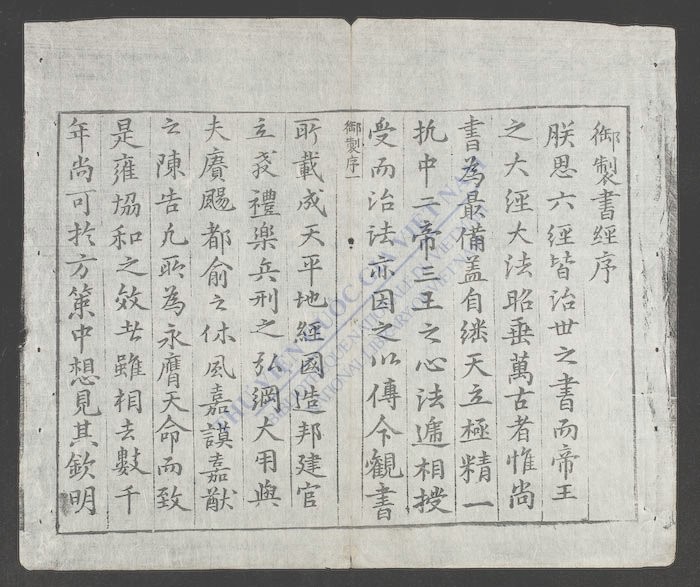 御製書經序
朕思六經皆治世之書而帝王
之大經大法昭垂萬古者惟尚
書為最備盖自继天立極精一
执中二帝三王之心法遞相授
受而治法亦因之以傳今觀書
御製序一
所載成天平地經國造邦建官
立教禮樂兵刑之弘綱大用與
夫賡颺都俞之休風嘉謨嘉猷
之陳告凢所為永膺天命而致
是雍協和之效者雖相去數千
年尚可於方策中想見其欽明
THƯ VIỆN QUỐC GIA VIỆT NAM
NATIONAL LIBRARY OF VIETNAM